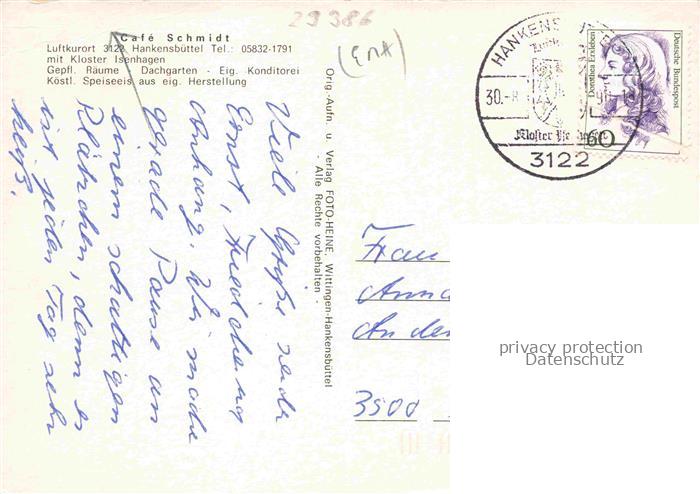 29386
(EMA)
Café Schmidt
Luftkurort 3122 Hankensbüttel Tel.: 05832-1791
mit Kloster Isenhagen
Gepfl. Räume - Dachgarten - Eig. Konditorei
Köstl. Speiseeis aus eig. Herstellung
Viele Grüße
Ernst,
Wir
gerade Pause an
einem schattigen
Plätzchen, denn es
ist jeden Tag sehr
heiß.
Orig.-Aufn. u. Verlag FOTO-HEINE, Wittingen-Hankensbüttel
- Alle Rechte vorbehalten -
HANKENSBÜTTEL
30.-8
Kloster
3122
Deutsche Bundespost
Dorothea Erxleben
60
Frau
Anna
An der
3500
privacy protection
Datenschutz